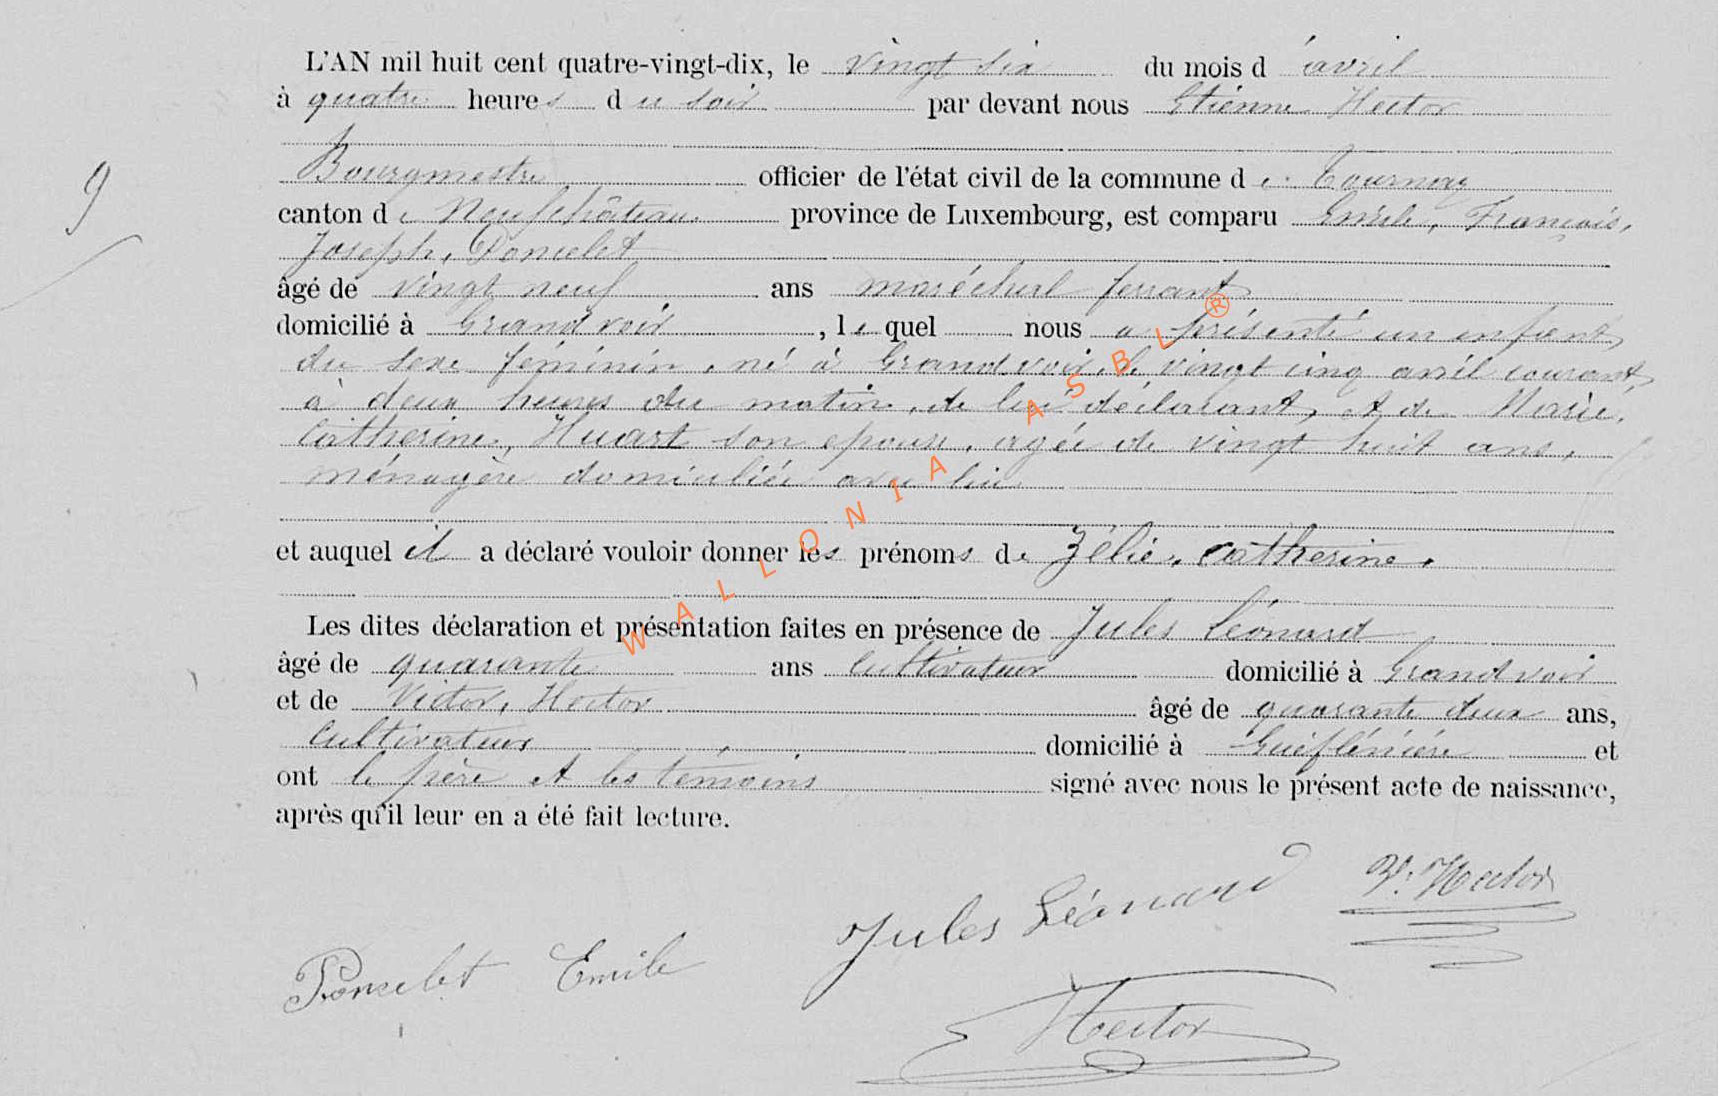 L'AN mil huit cent quatre-vingt-dix, le vingt six du mois d'avril
à quatre heures du soir par devant nous Etienne Hector
Bourgmestre officier de l'état civil de la commune de Tournay
9
canton de Neufchâteau province de Luxembourg, est comparu Emile, François,
Joseph, Poncelet
âgé de vingt neuf ans maréchal ferrant
domicilié à Grandvoir, lequel nous a présenté un enfant
du sexe féminin, né à Grandvoir, le vingt cinq avril courant,
à deux heures du matin, de lui déclarant, et de Marie,
Catherine, Huart son epouse, agée de vingt huit ans,
ménagère domiciliée avec lui
et auquel il a déclaré vouloir donner les prénoms de Zélie, Catherine.
Les dites déclaration et présentation faites en présence de Jules Léonard
âgé de quarante ans cultivateur domicilié à Grandvoir
et de Victor, Hector âgé de quarante deux ans,
Cultivateur domicilié à et
ont le père et les témoins signé avec nous le présent acte de naissance,
après qu'il leur en a été fait lecture.
V. Hector
Jules Léonard
Poncelet Emile
Hector
WALLONIA ASBL ®